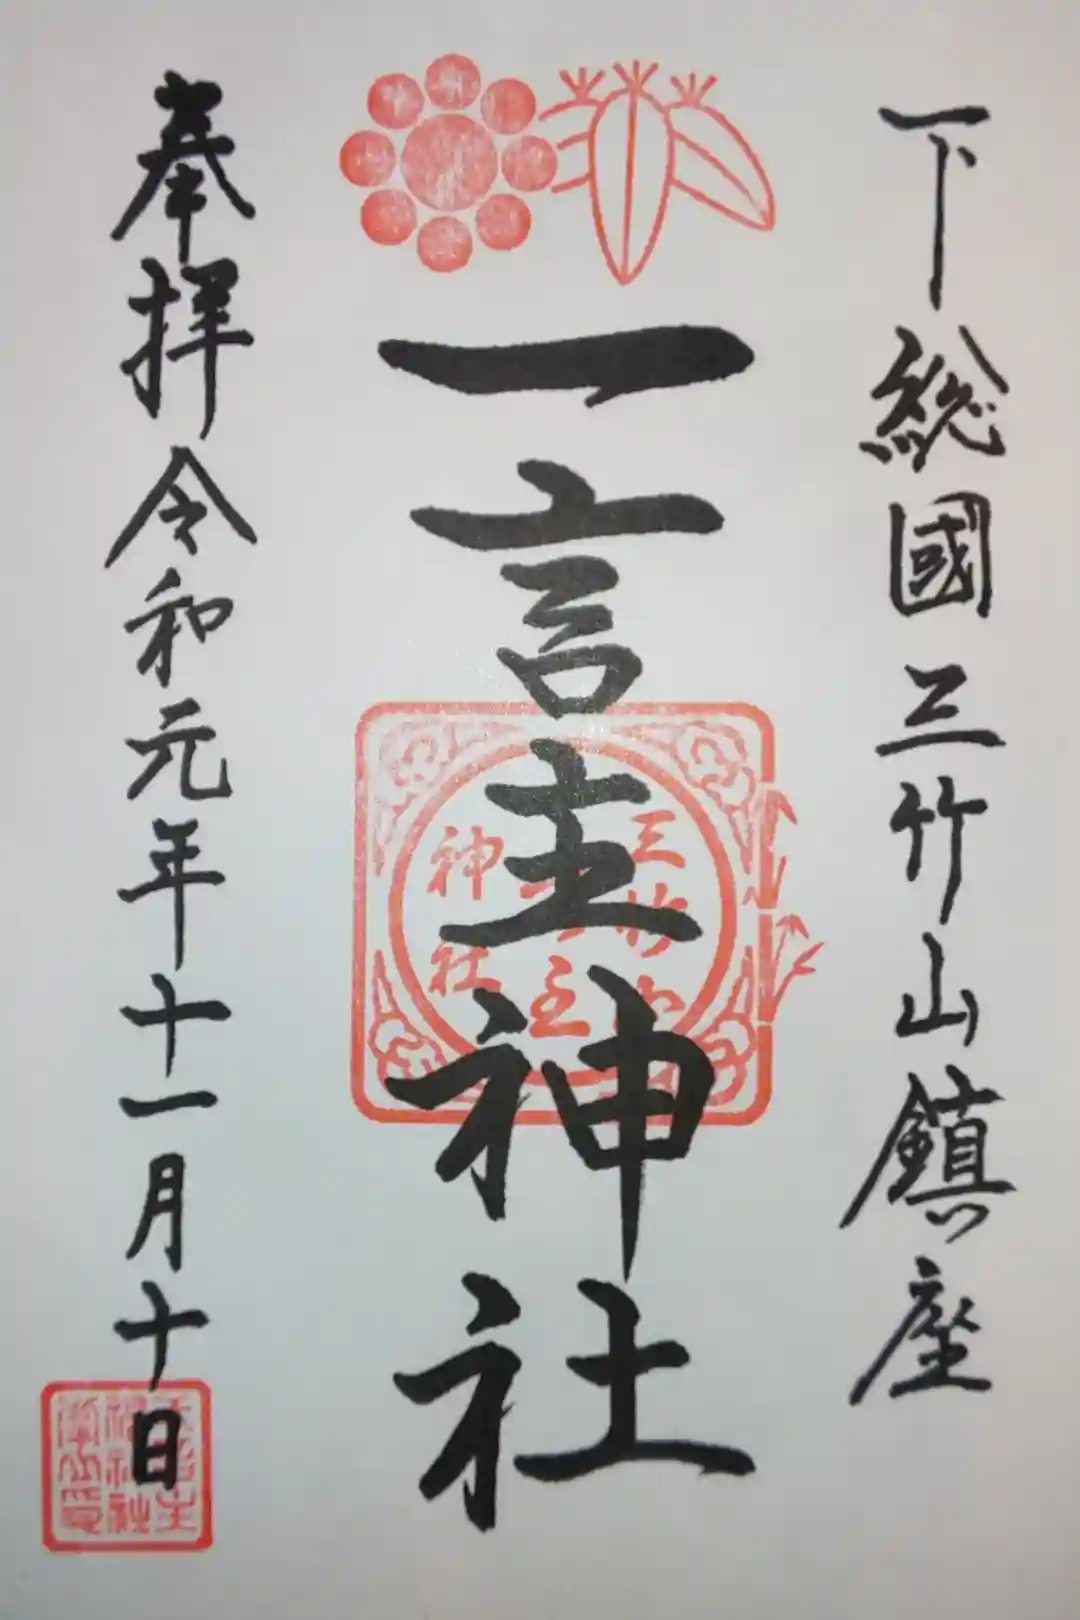 下総國三竹山鎮座
一言主神社
三竹山
主
神社
奉拝令和元年十一月十日